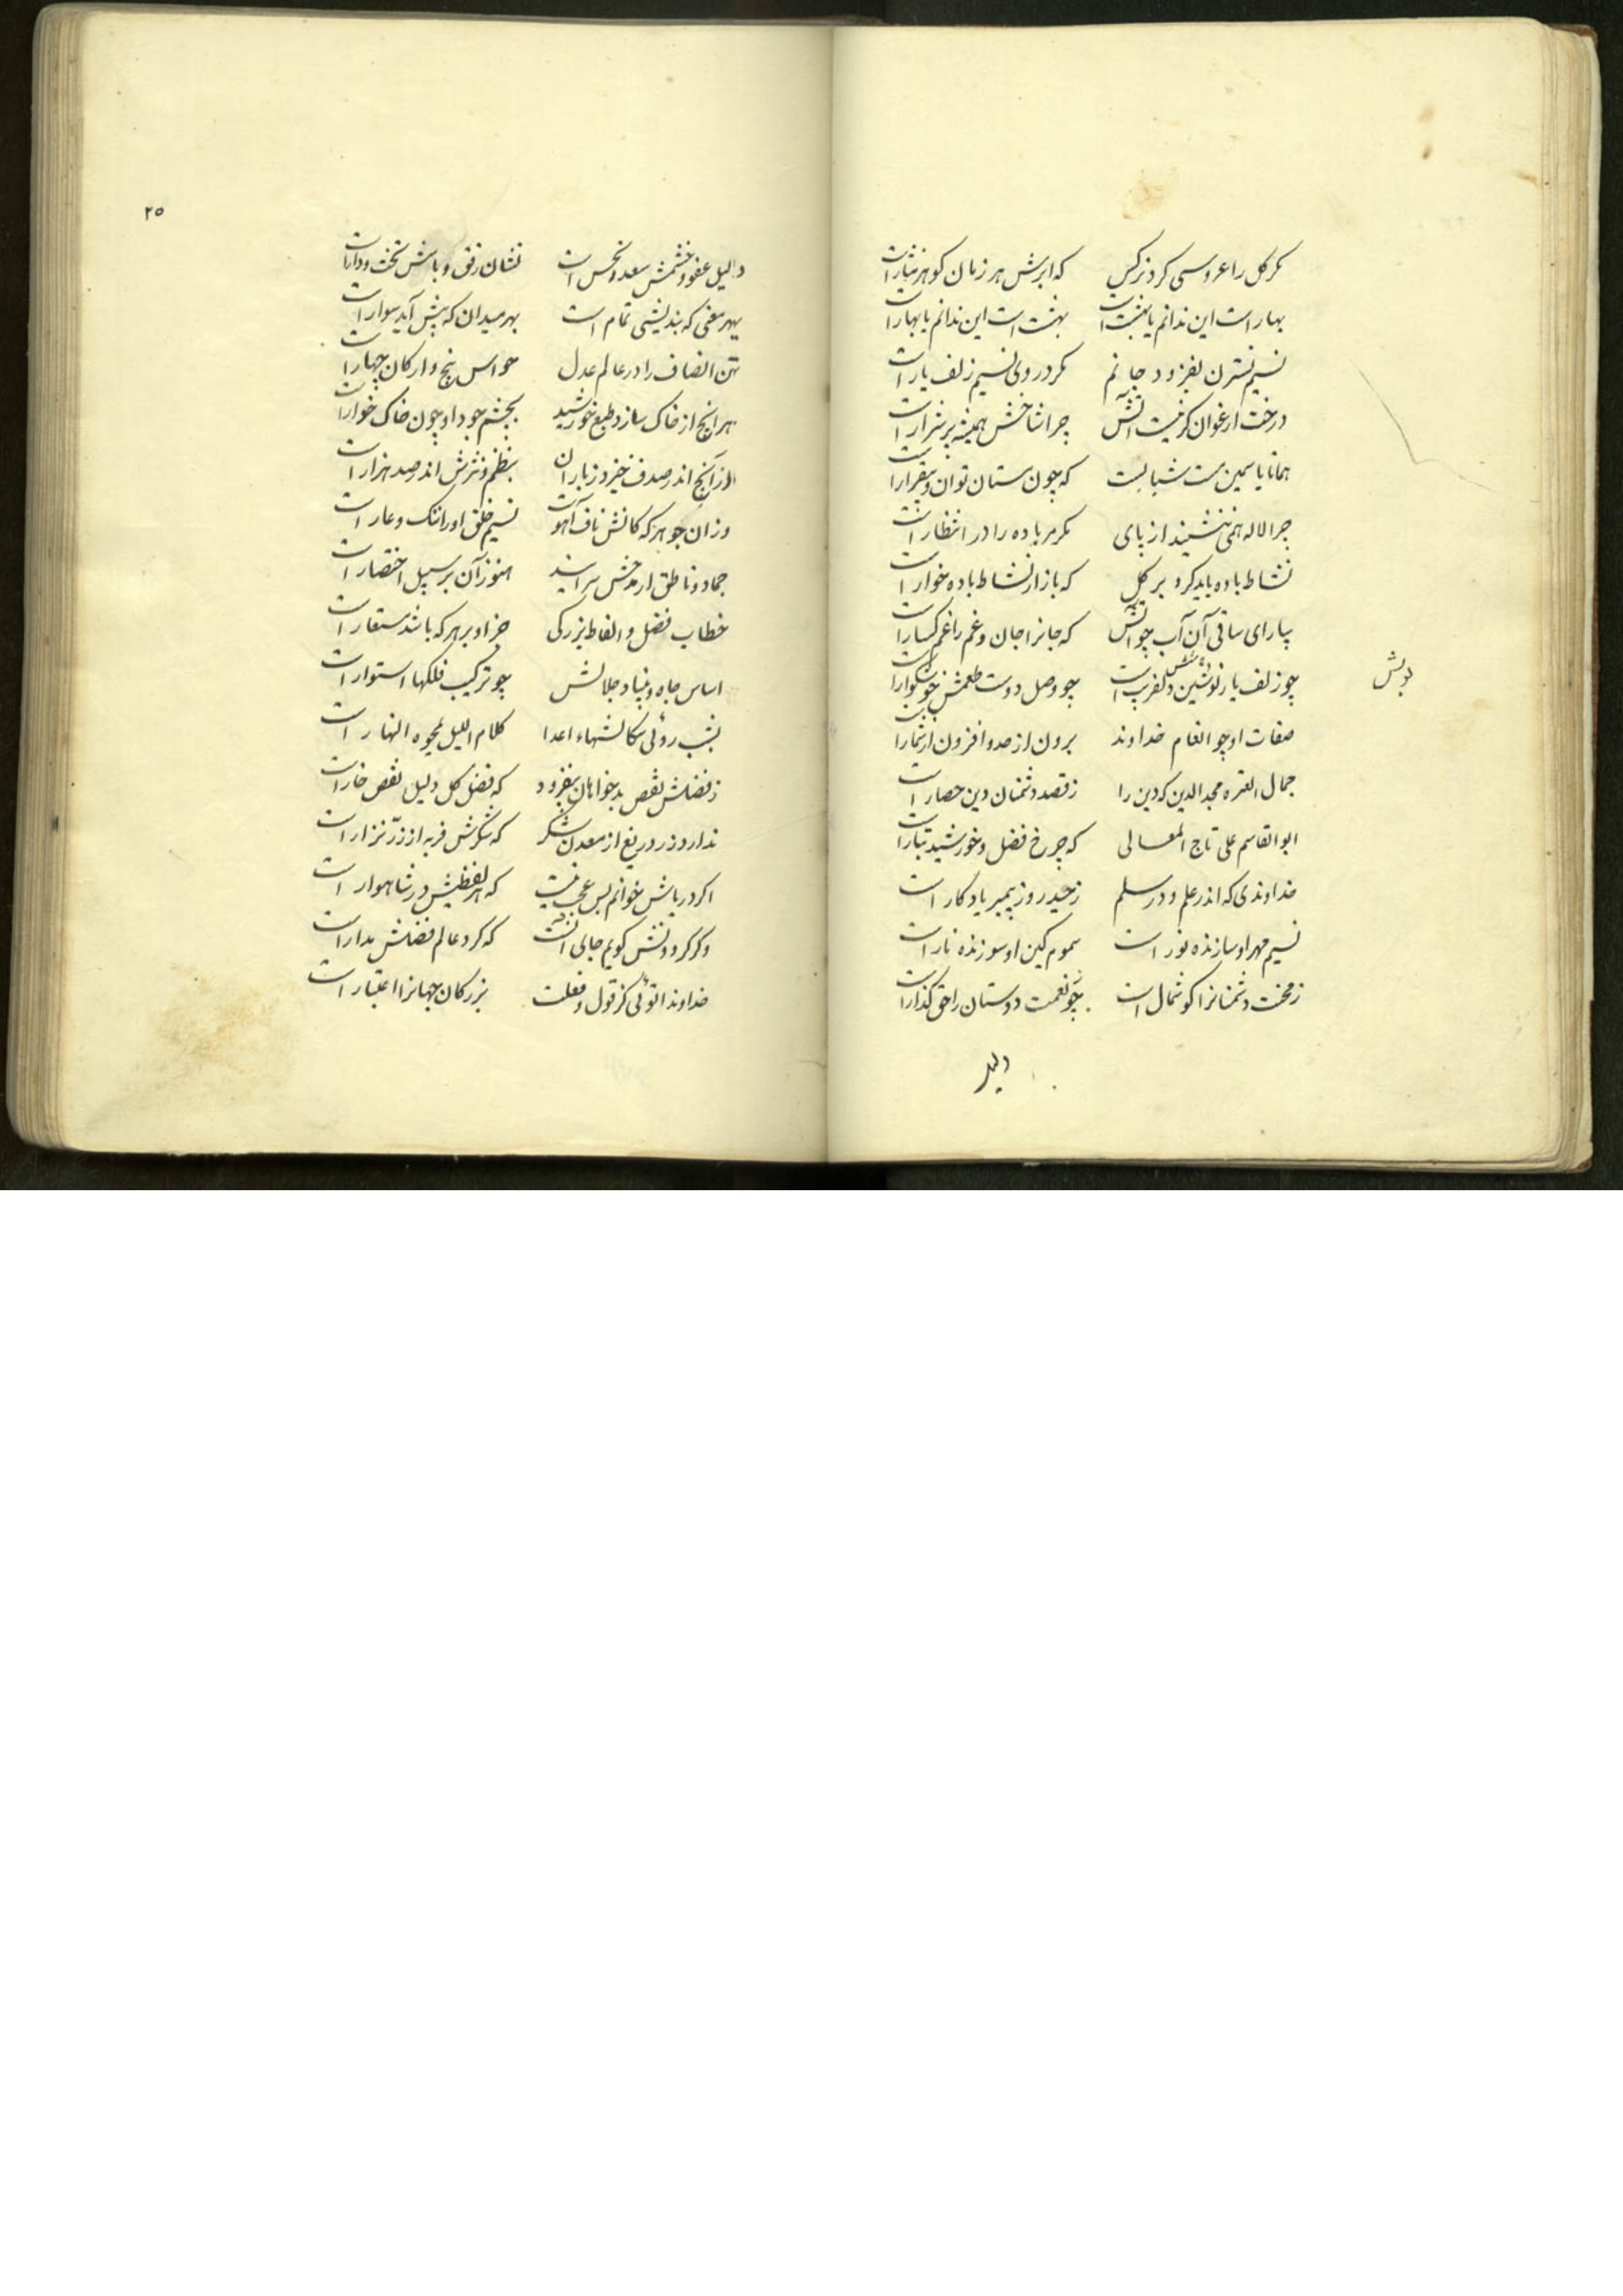 مکر کل را عروسی کرد نرکس که ابرش هر زمان کوهر نثار است
بهار است این ندانم یا بهشت است بهشت است این ندانم یا بهار است
نسیم نسترن بفزود جانم مکر در وی نسیم زلف یار است
درخت ارغوان کر نیست آتش چرا شاخش همیشه پر شرار است
همانا یاسمین مست شبانست که چون مستان نوان و بیقرار است
چرا لاله همی ننشیند از پای مکر مر باده را در انتظار است
نشاط باده باید کرد بر کل که بازار نشاط باده خوار است
بیار ای ساقی آن آب چو آتش که جانرا جان و غم را غمکسار است
چو زلف یار نوشین دلفریب است چو وصل دوست طعمش خوشکوار است
صفات او چو انعام خداوند برون از حد و افزون از شمار است
جمال العتره مجد الدین که دین را ز قصد دشمنان دین حصار است
ابو القاسم علی تاج المعالی که چرخ فضل و خورشید تبار است
خداوندی که اندر علم و در سلم ز حیدر وز پیمبر یادکار است
نسیم مهر او سازنده نور است سموم کین او سوزنده نار است
ز محنت دشمنانرا کوشمال است چو نعمت دوستان را حق کذار است
دلیل
۲۵
دلیل عفو و خشمش سعد و نحس است نشان رفق و باسش تخت و دار است
بهر معنی که بندیشی تمام است بهر میدان که پیش آید سوار است
تن انصاف را در عالم عدل حواس پنج و ارکان چهار است
هر آنچ از خاک سازد طبع خورشید بچشم جود او چون خاک خوار است
از آنچ اندر صدف خیزد ز باران بنظم و نثرش اندر صد هزار است
وزان جوهر که کانش ناف آهوست نسیم خلق او را ننک و عار است
جماد و ناطق ار مدحش سرایند هنوز آن بر سبیل اختصار است
خطاب فضل و الفاظ بزرکی جز او بر هر که باشد مستعار است
اساس جاه و بنیاد جلالش چو ترکیب فلکها استوار است
بشب روئی سکالشهاء اعدا کلام اللیل یمحوه النهار است
ز فضلش نقص بدخواهان بیفزود که فضل کل دلیل نقص خار است
ندارد زر دریغ از معدن شکر که شکرش فربه از زر نزار است
اکر دریاش خوانم بس عجب نیست که هر لفظیش در شاهوار است
وکر کردونش کویم جای آنست که کرد عالم فضلش مدار است
خداوندا توئی کز قول و فعلت بزرکان جهانرا اعتبار است